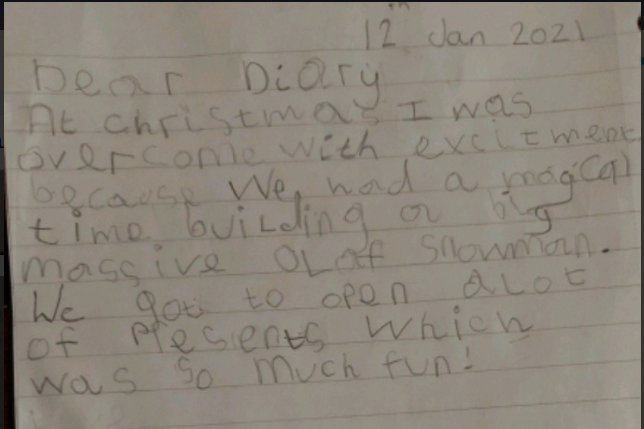 12th Jan 2021
Dear Diary
At christmas I was
overcome with excitment
because We had a magical
time building a big
massive OLaf snowman.
We got to open aLot
of Presents which
was so much fun!